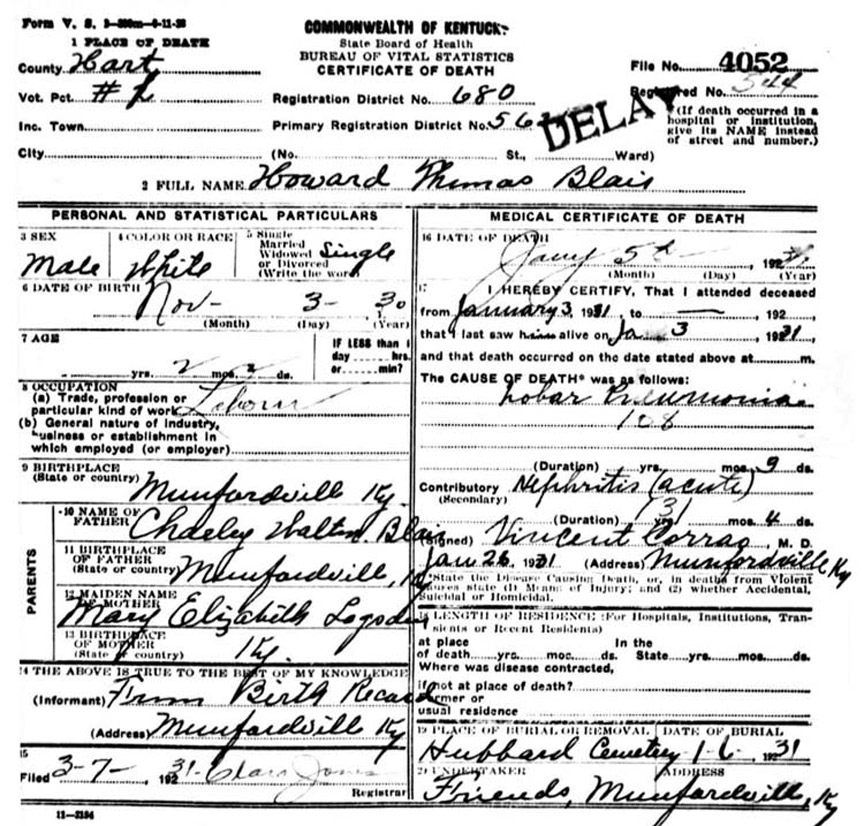 Form V. S.
COMMONWEALTH OF KENTUCKY
1 PLACE OF DEATH
State Board of Health
BUREAU OF VITAL STATISTICS
CERTIFICATE OF DEATH
County Hart
File No. 4052
Vot. Pct. #
Registration District No. 680
Registered No. 544
Inc. Town
Primary Registration District No. 56
DELAY
(If death occurred in a
hospital or institution,
give its NAME instead
of street and number.)
City (No. St., Ward)
2 FULL NAME Howard Thomas Blair
PERSONAL AND STATISTICAL PARTICULARS
3 SEX
Male
4 COLOR OR RACE
White
5 Single
Married
Widowed
or Divorced
(Write the word)
Single
6 DATE OF BIRTH
Nov- 3- 30
(Month) (Day) (Year)
7 AGE
yrs. 2 mos. 2 ds.
IF LESS than 1
day hrs.
or min?
8 OCCUPATION
(a) Trade, profession or
particular kind of work
(b) General nature of industry,
business or establishment in
which employed (or employer)
9 BIRTHPLACE
(State or country)
Munfordville Ky.
PARENTS
10 NAME OF
FATHER
Charley Walton Blair
11 BIRTHPLACE
OF FATHER
(State or country)
Munfordville, Ky
12 MAIDEN NAME
OF MOTHER
Mary Elizabeth Logsdon
13 BIRTHPLACE
OF MOTHER
(State or country)
Ky.
14 THE ABOVE IS TRUE TO THE BEST OF MY KNOWLEDGE
(Informant) From Birth Record
(Address) Munfordville Ky
15
Filed 3-7-, 1931
Registrar
11-3184
MEDICAL CERTIFICATE OF DEATH
16 DATE OF DEATH
Jany 5th, 1931
(Month) (Day) (Year)
17 I HEREBY CERTIFY, That I attended deceased
from January 3, 1931, to —, 192
that I last saw him alive on Ja 3, 1931,
and that death occurred on the date stated above at m.
The CAUSE OF DEATH* was as follows:
Lobar Pneumonia
108
(Duration) yrs. mos. 9 ds.
Contributory Nephritis (acute)
(Secondary)
131
(Duration) yrs. mos. 4 ds.
(Signed) Vincent Corrao, M. D.
Jan 26, 1931 (Address) Munfordville Ky
*State the Disease Causing Death, or, in deaths from Violent
Causes state (1) Means of Injury; and (2) whether Accidental,
Suicidal or Homicidal.
18 LENGTH OF RESIDENCE (For Hospitals, Institutions, Transients
or Recent Residents)
at place In the
of death yrs. mos. ds. State yrs. mos. ds.
Where was disease contracted,
if not at place of death?
Former or
usual residence
19 PLACE OF BURIAL OR REMOVAL
Hubbard Cemetery
DATE OF BURIAL
1-6-, 1931
20 UNDERTAKER
ADDRESS
Friends, Munfordville, Ky